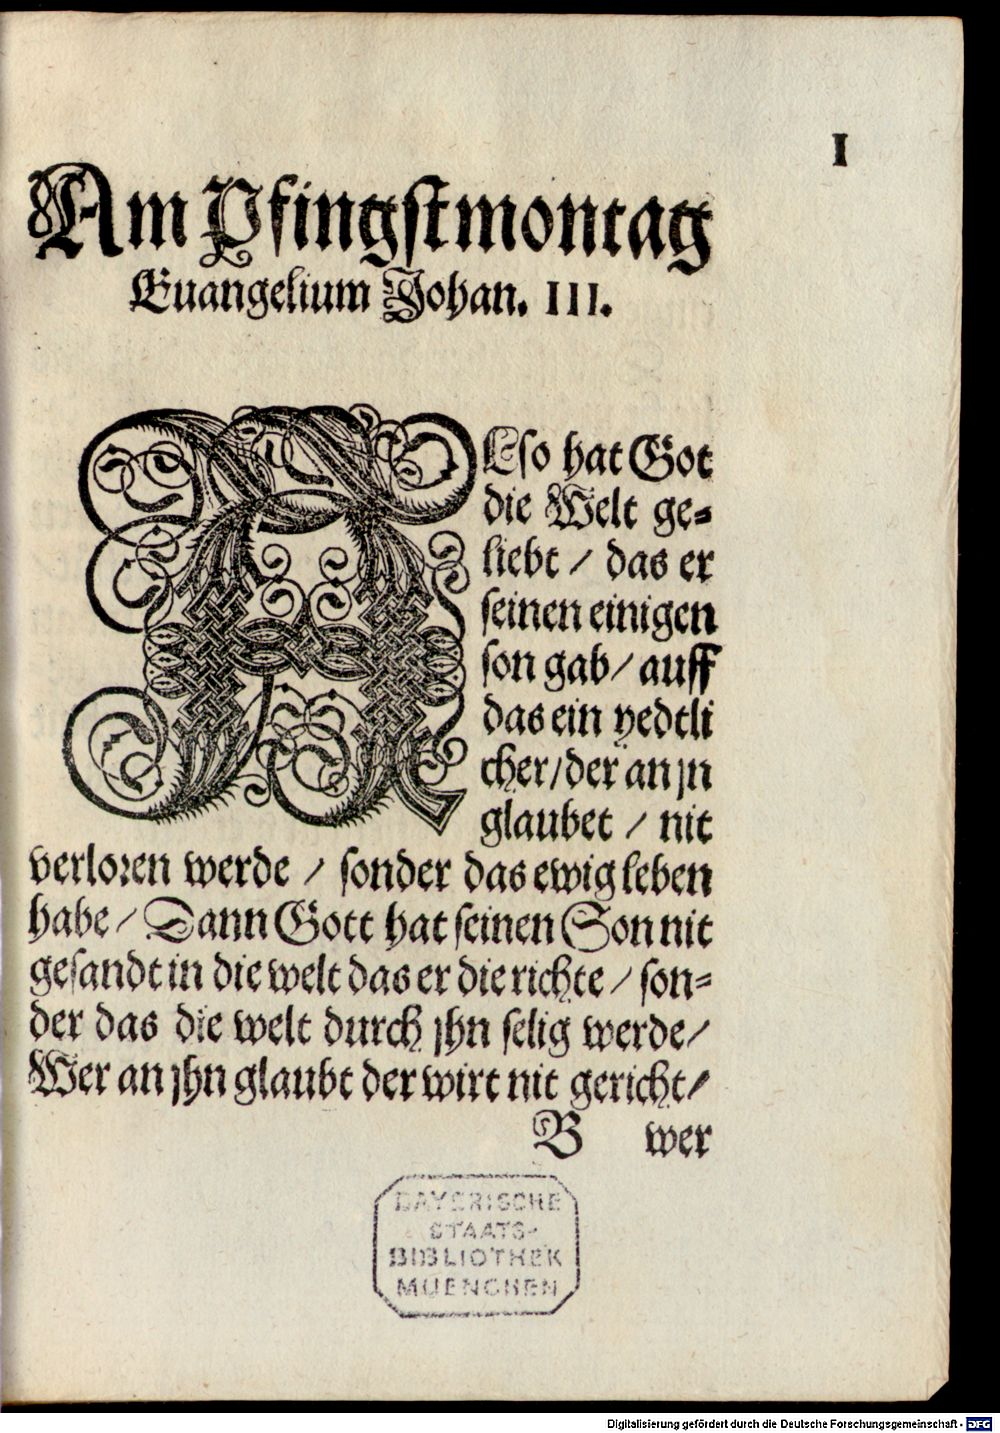 I
Am Pfingstmontag
Euangelium Johan. III.
ALso hat Got
die Welt ge=
liebt / das er
seinen einigen
son gab / auff
das ein yedtli
cher / der an jn
glaubet / nit
verloren werde / sonder das ewig leben
habe / Dann Gott hat seinen Son nit
gesandt in die welt das er die richte / son=
der das die welt durch jhn selig werde /
Wer an jhn glaubt der wirt nit gericht /
B wer
BAYERISCHE
STAATS-
BIBLIOTHEK
MUENCHEN
Digitalisierung gefördert durch die Deutsche Forschungsgemeinschaft - DFG